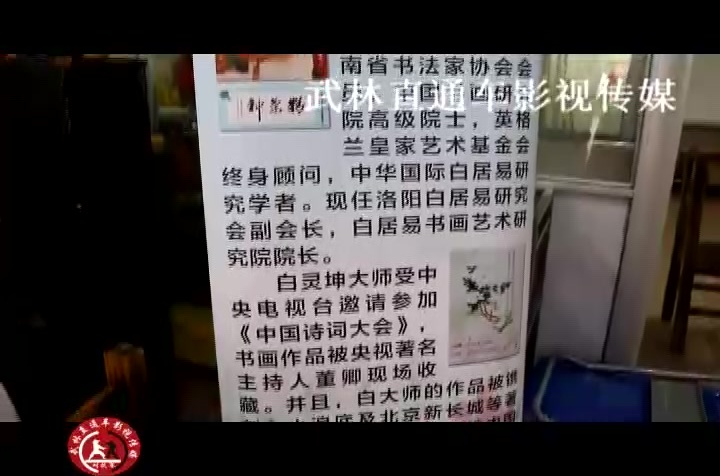 武林直通车影视传媒
南省书法家协会会
员，中国书画研究
院高级院士，英格
兰皇家艺术基金会
终身顾问，中华国际白居易研
究学者。现任洛阳白居易研究
会副会长，白居易书画艺术研
究院院长。
白灵坤大师受中
央电视台邀请参加
《中国诗词大会》，
书画作品被央视著名
主持人董卿现场收
藏。并且，白大师的作品被镌
及北京新长城等著
武林直通车影视传媒